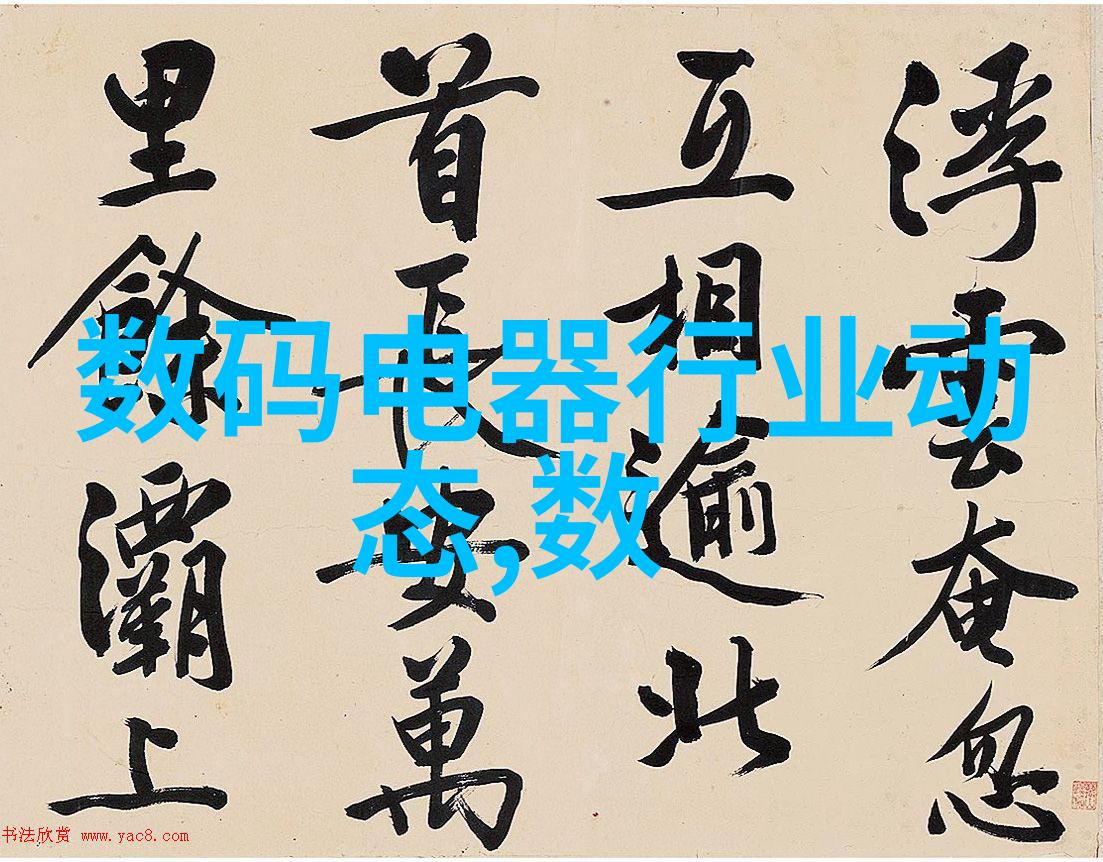 浮雲奄忽
互相逾北
首長安萬
里餘灞上
数码电器行业动
态,数
书法欣赏 www.yac8.com